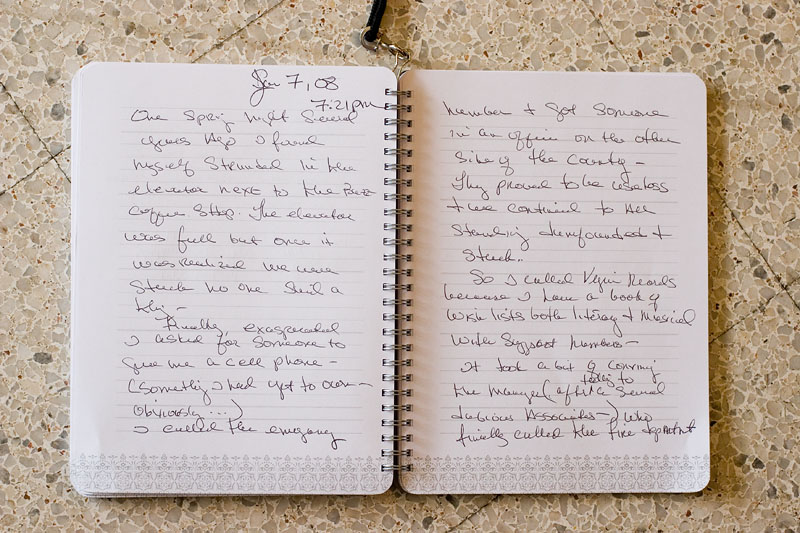 Jan 7, 08
7:21pm
One Spring night Several
years ago I found
myself Stranded in the
elevator next to the Buzz
Coffee Stop. The elevator
was full but once it
was realized we were
Stuck no one Said a
thing –
Finally, exasperated
I asked for someone to
give me a cell phone –
(something I had yet to own –
obviously...)
I called the emergency
number & got Someone
in an office on the other
side of the County –
They proved to be useless
& we continued to
standing dumfounded &
stuck..
So I called Virgin Records
because I have a book of
wish lists both literary & Musical
with Support numbers –
It took a bit of convincing
the manager (after talking to Several
dubious Associates –) who
finally called the fire department